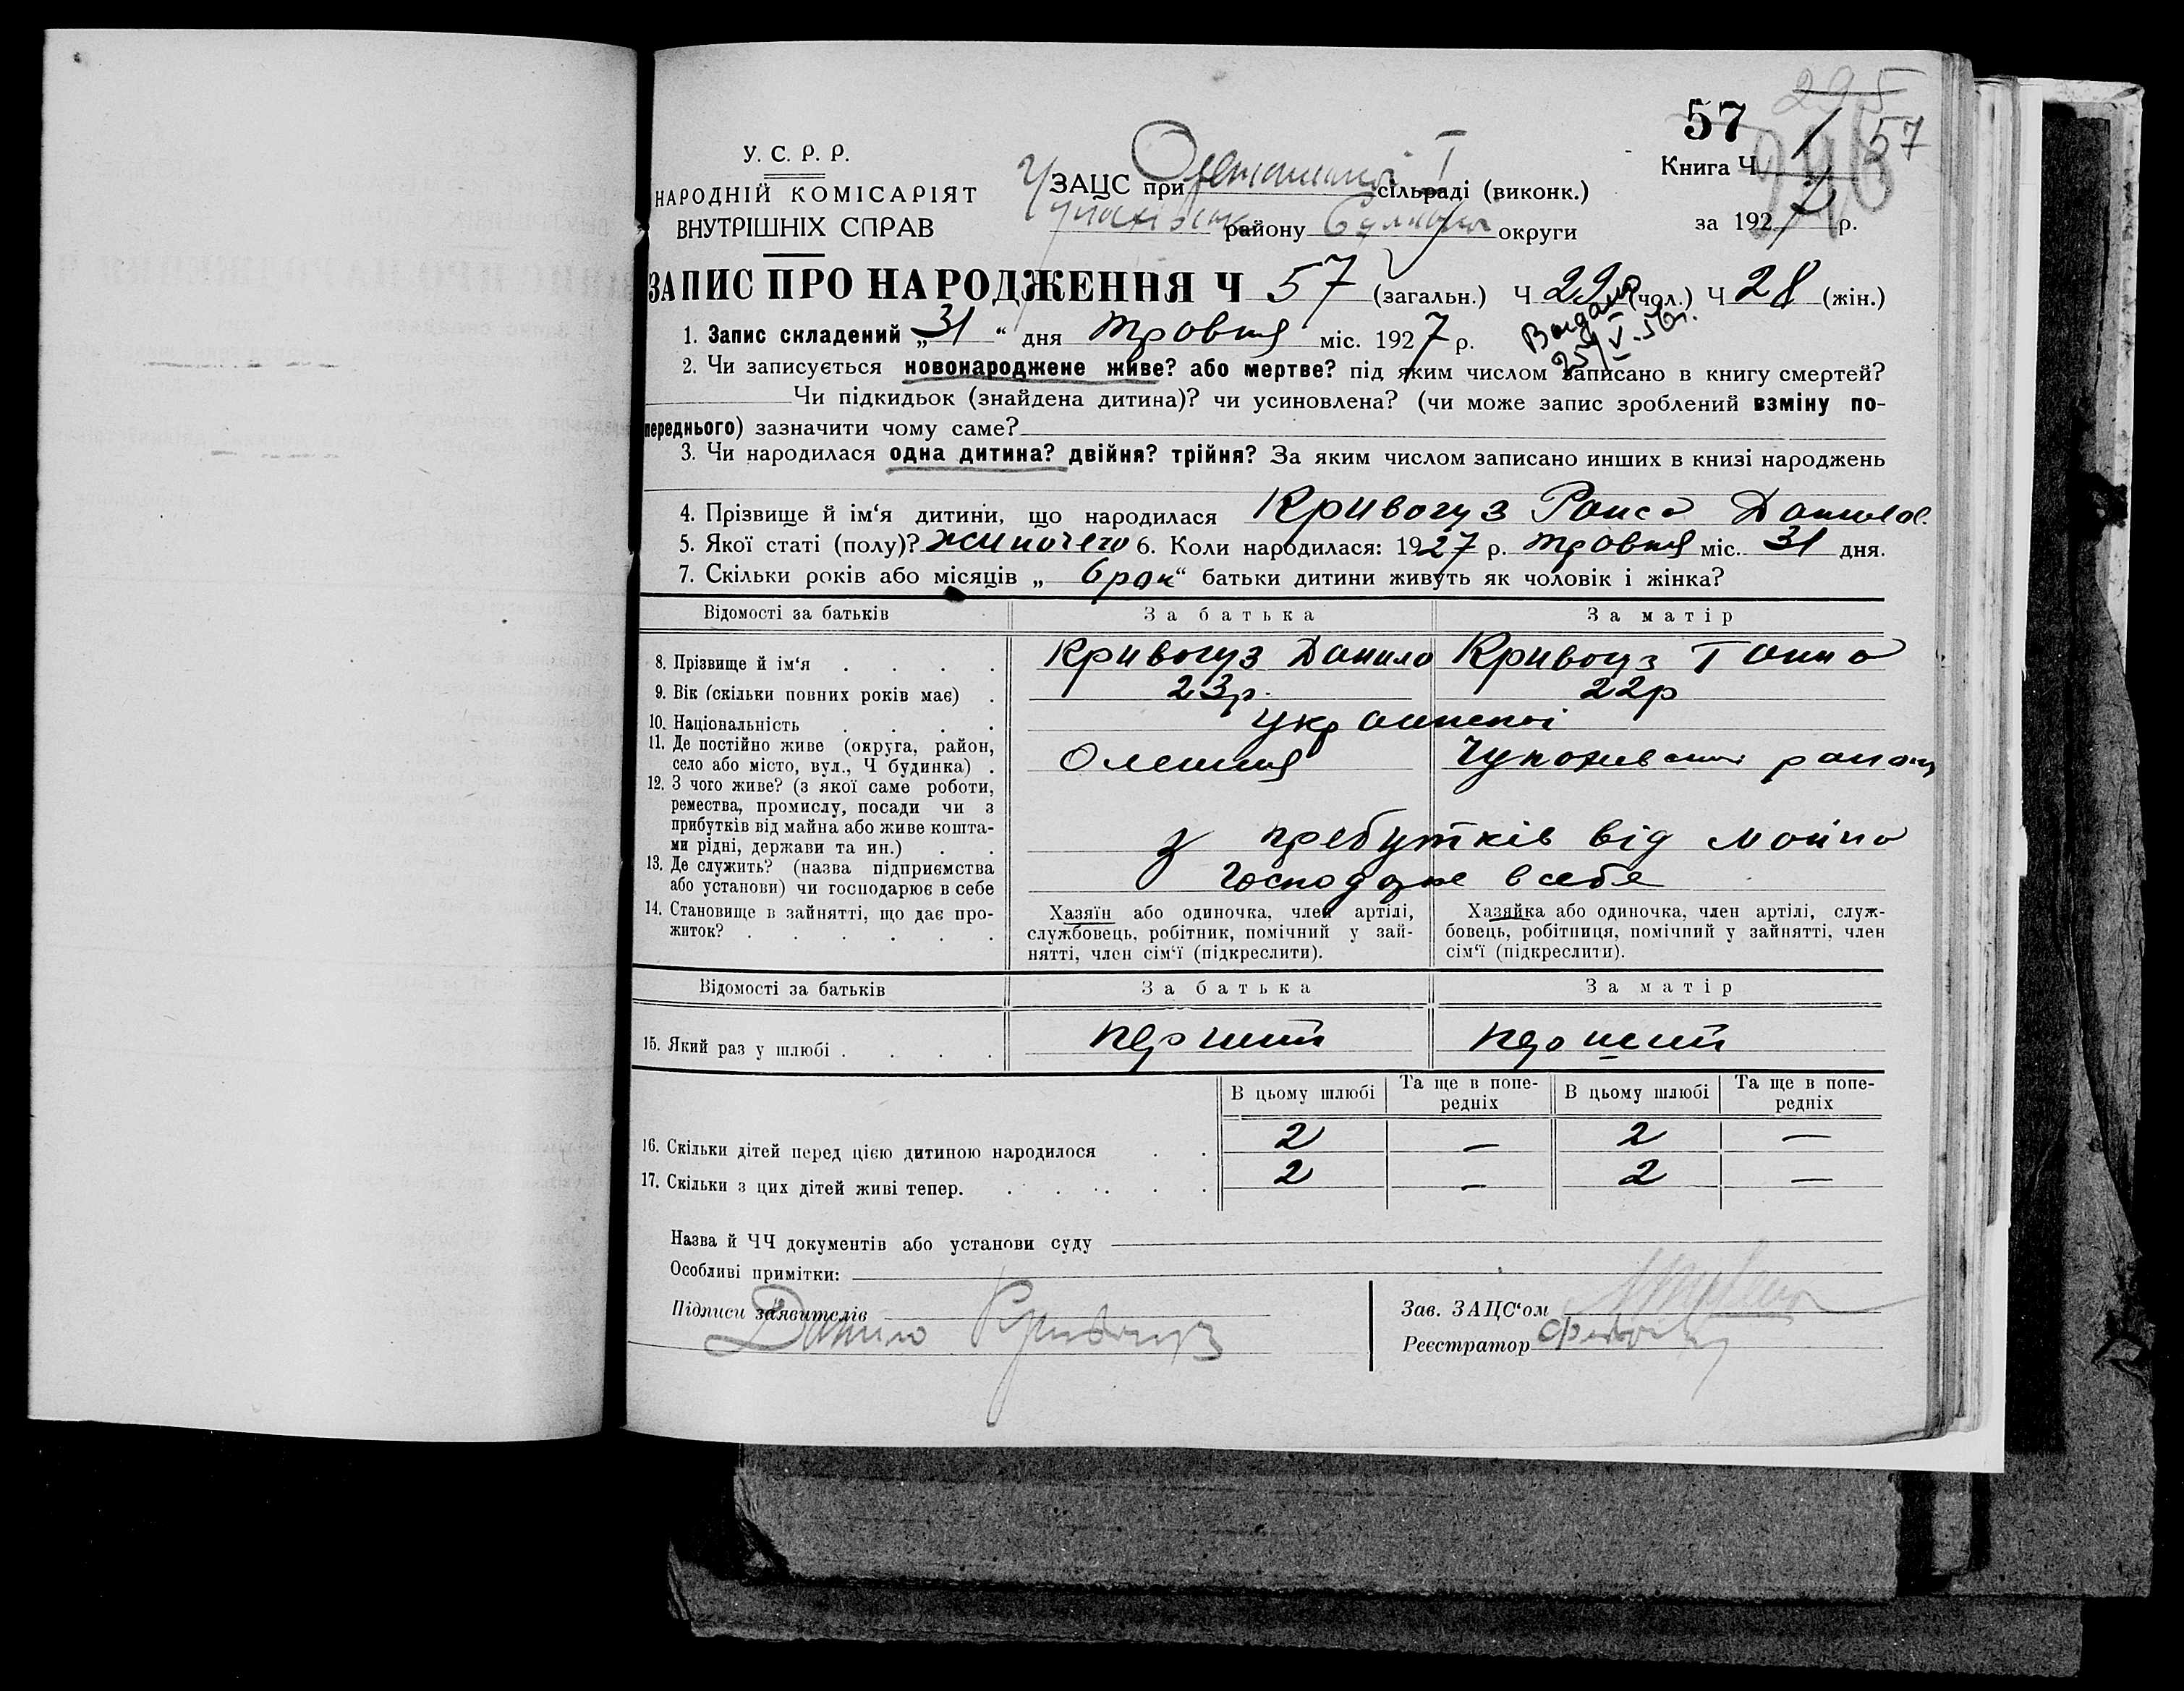 295
57 1 57
У. С. Р. Р.
НАРОДНІЙ КОМІСАРІЯТ
ВНУТРІШНІХ СПРАВ
ЗАЦС при сільраді (виконк.)
району округи
Книга Ч
за 1927 р.
ЗАПИС ПРО НАРОДЖЕННЯ Ч 57 (загальн.) Ч 29 (чол.) Ч 28 (жін.)
1. Запис складений „31“ дня травня міс. 1927 р.
2. Чи записується новонароджене живе? або мертве? під яким числом записано в книгу смертей?
Чи підкидьок (знайдена дитина)? чи усиновлена? (чи може запис зроблений взміну по-
переднього) зазначити чому саме?
3. Чи народилася одна дитина? двійня? трійня? За яким числом записано инших в книзі народжень
4. Прізвище й ім'я дитини, що народилася Кривогуз Раиса Данилов.
5. Якої статі (полу)? жиночего 6. Коли народилася: 1927 р. травня міс. 31 дня.
7. Скільки років або місяців „ 6 рок“ батьки дитини живуть як чоловік і жінка?
Відомості за батьків За батька За матір
8. Прізвище й ім'я . . . . Кривогуз Данило Кривогуз Ганна
9. Вік (скільки повних років має) . 23р. 22р
10. Національність . . . . украинські
11. Де постійно живе (округа, район,
село або місто, вул., Ч будинка) . Олешня Чупахивский району
12. З чого живе? (з якої саме роботи,
ремества, промислу, посади чи з
прибутків від майна або живе кошта-
ми рідні, держави та ин.) . . з требутків від майна
13. Де служить? (назва підприємства
або установи) чи господарює в себе господарює в себе
14. Становище в зайнятті, що дає про-
житок? . . . . . .
Хазяїн або одиночка, член артілі,
службовець, робітник, помічний у зай-
нятті, член сім'ї (підкреслити).
Хазяйка або одиночка, член артілі, служ-
бовець, робітниця, помічний у зайнятті, член
сім'ї (підкреслити).
Відомості за батьків За батька За матір
15. Який раз у шлюбі . . . . перший перший
В цьому шлюбі Та ще в попе-
редніх В цьому шлюбі Та ще в попе-
редніх
16. Скільки дітей перед цією дитиною народилося . . 2 — 2 —
17. Скільки з цих дітей живі тепер. . . . . . . 2 — 2 —
Назва й ЧЧ документів або установи суду
Особливі примітки:
Підписи заявителів
Данило Кривогуз
Зав. ЗАЦС'ом
Реєстратор